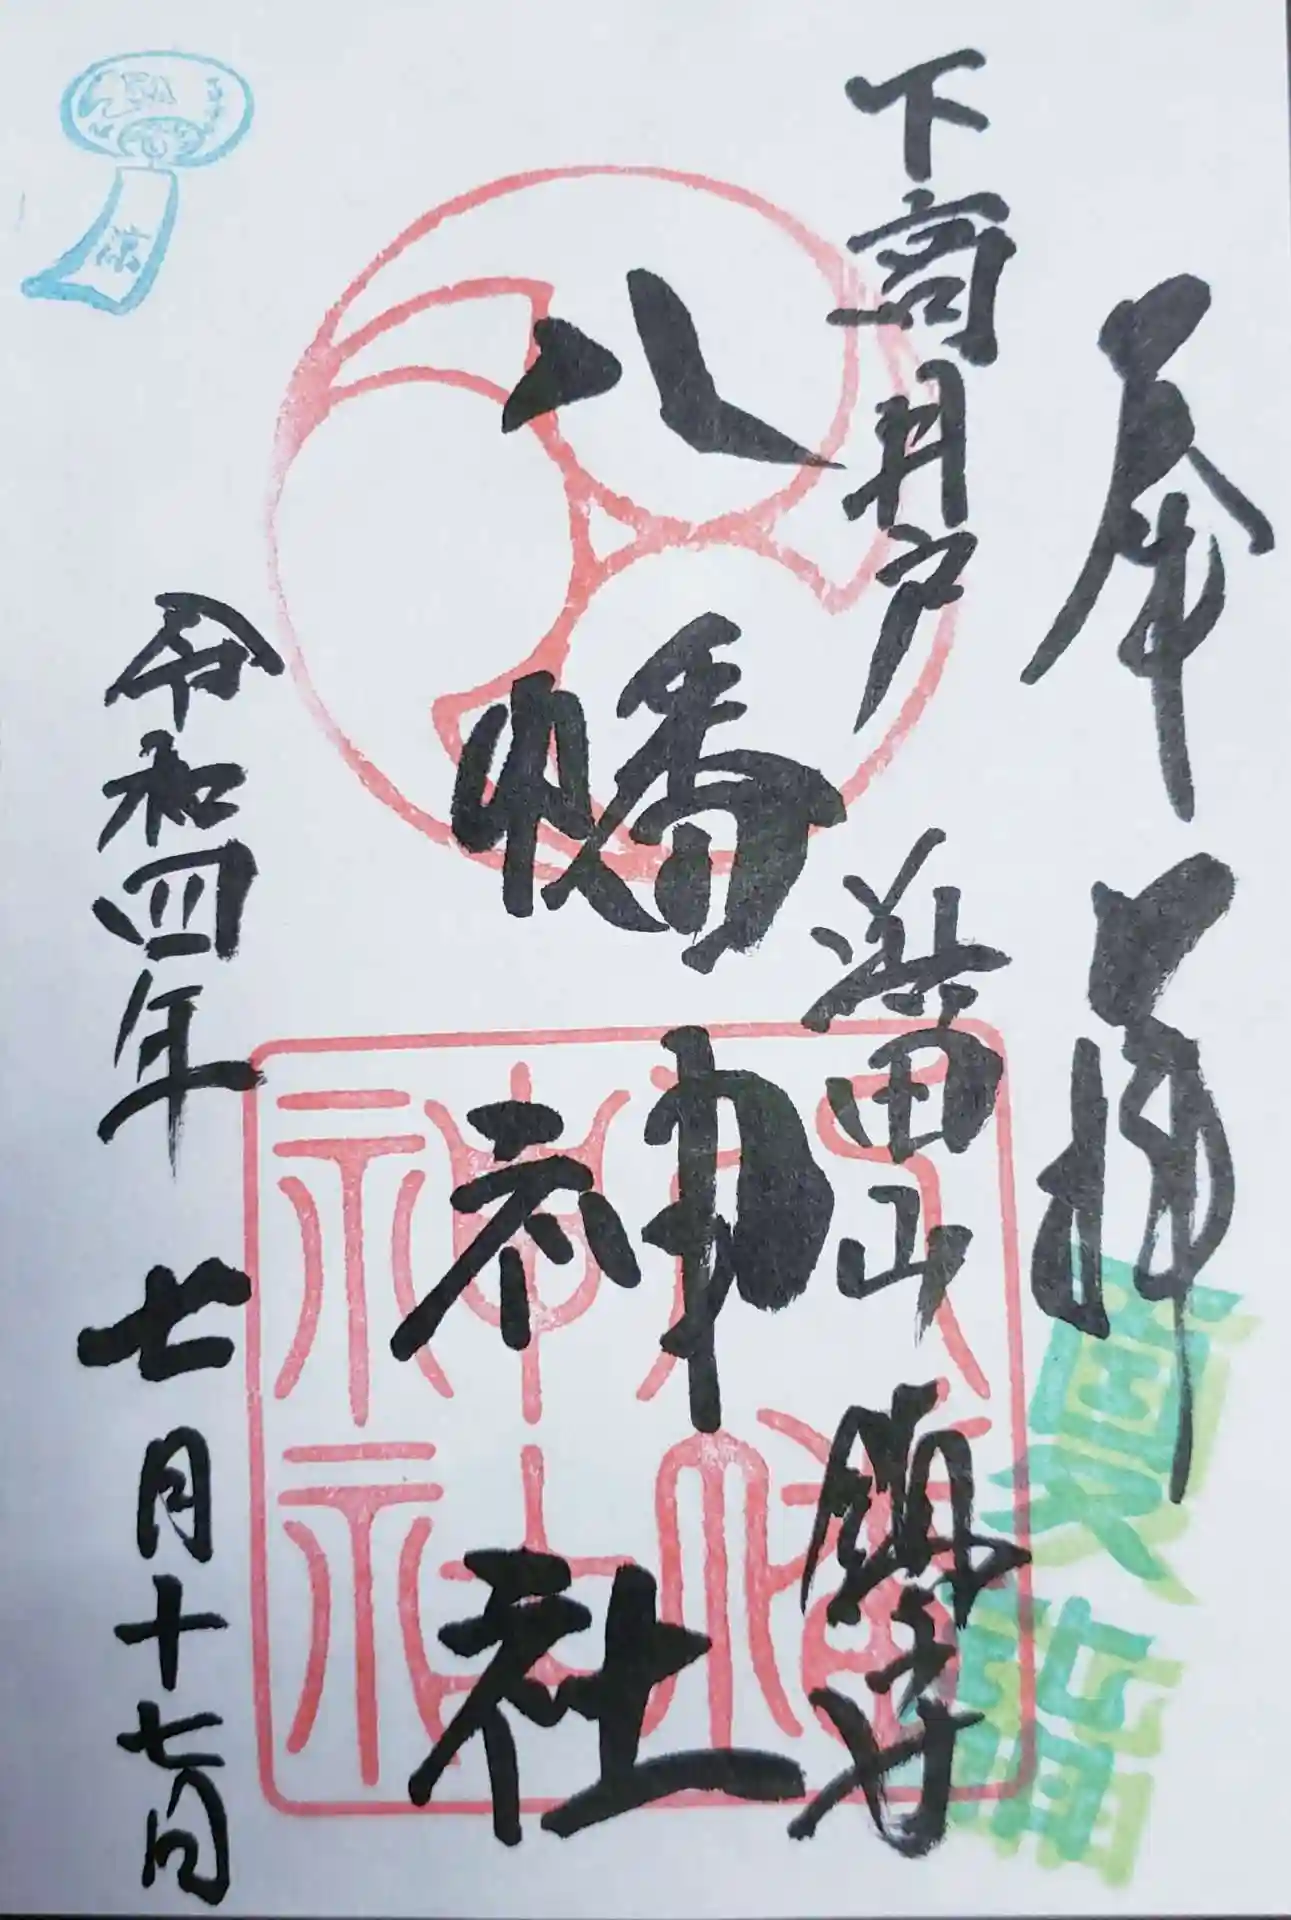 奉拝
夏詣
下高井戸 浜田山 鎮守
八幡神社
八幡神社
令和四年 七月十七日
涼